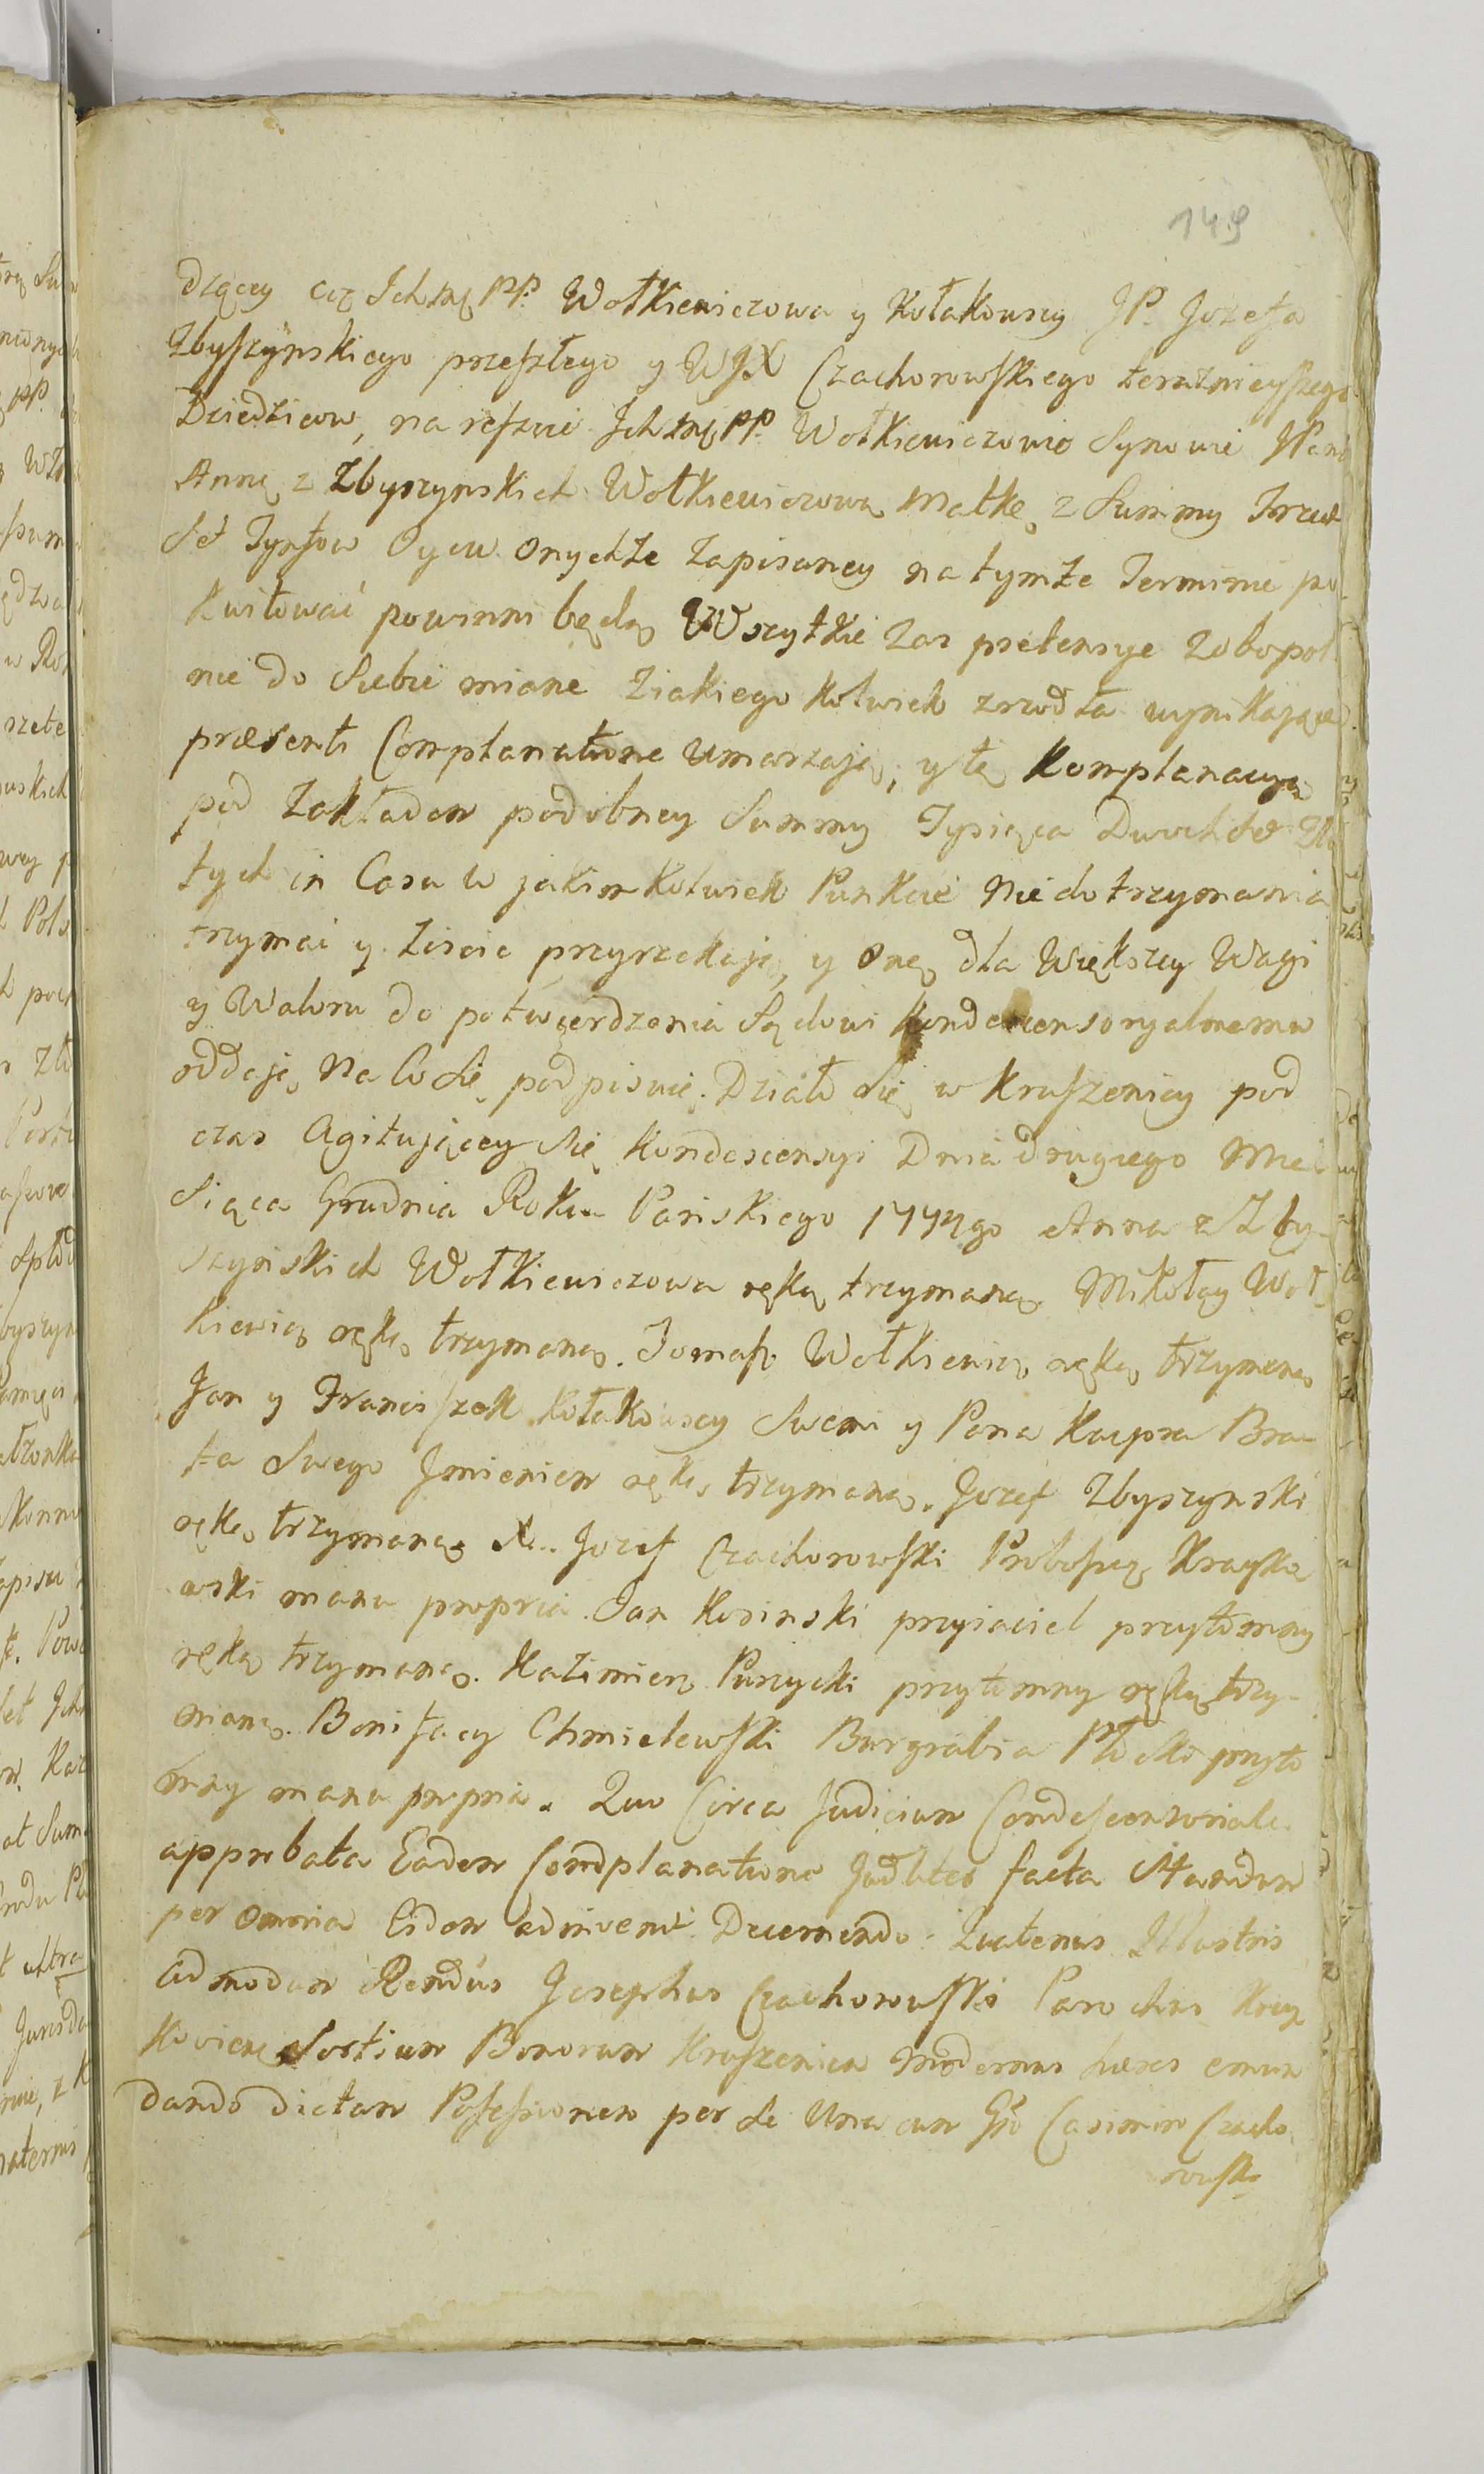 149
dzący Ichmę PP. Wołkiewiczowa y Kołakowscy JP. Jozefa
Zbyszynskiego przeszłego y WJX Czachorowskiego teraznieyszego
Dziedzicow, na reszcie Ichmę PP. Wołkiewiczowie Synowie
Annę z Zbyszynskich Wołkiewiczową Matkę z Summy Trzech
Set Tynfow Oycu Onychże zapisaney na tymże Terminie po
kwitować powinni będą Wszytkie zas pretensye zobopol
nie do Siebie miane z iakiego kolwiek zrzodła wynikaiące
præsenti Complanatione umarzaią, y tę komplanacyą
pod Zakładem podobney Summy Tysiąca Dwochset Zło
tych in Casu w jakim kolwiek Punkcie Niedotrzymania
trzymać y ziscic przyrzekaią, y Onę dla Większey Wagi
y Waloru do potwierdzenia Sądowi kondescensoryalnemu
oddaią, Na Co Się podpisuię. Działo Się w Kruszenicy pod
czas Agituiącey Się kondescensyi Dnia drugiego Mie
Siąca Grudnia Roku Panskiego 1774go Anna z Zby-
szynskich Wołkiewiczowa ręką trzymaną. Mikołay Woł
kiewicz ręką trzymaną. Tomasz Wołkiewicz ręką trzymaną
Jan y Franciszek Kołakowscy Swemi y Pana Kacpra Bra
ta Swego Jmieniem ręką trzymaną. Jozef Zbyszynski
ręką trzymaną X. Jozef Czachorowski Proboszcz
wski manu propria. Jan Kosinski przyiaciel przytomny
ręką trzymaną. Kazimierz Purzycki przytomny ręką trzy-
maną. Bonifacy Chmielewski Burgrabia Płocki przyto
mny manu propria. Quo Circa Judicium Condescensoriale
approbata Eadem Complanatione Judliter facta Standum
per Omnia Eidem adinvenit Decernendo: Quatenus Illustris
Admodum Rendus Josephus Czachorowski Parochus
Sortium Bonorum Kruszenica Modernus hæres emun
dando dictam Possessionem per Se Una cum Gso Casimiro Czacho
rowski